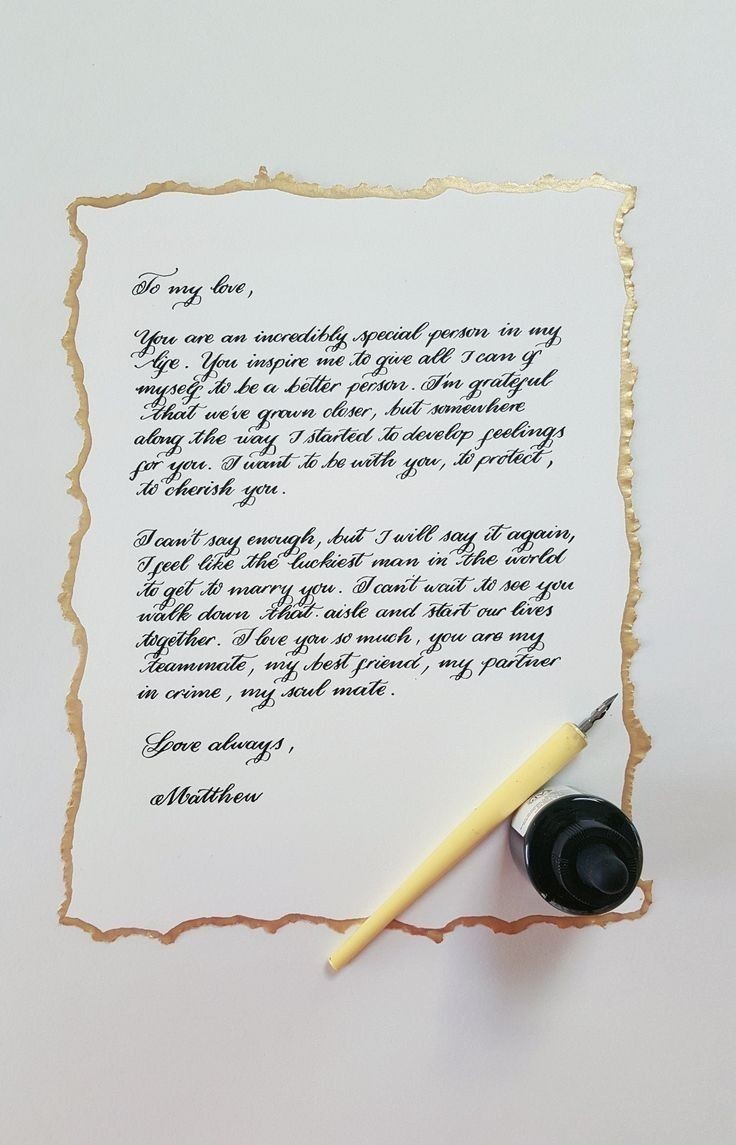 To my love,
You are an incredibly special person in my
life. You inspire me to give all I can of
myself to be a better person. I'm grateful
that we've grown closer, but somewhere
along the way I started to develop feelings
for you. I want to be with you, to protect,
to cherish you.
I can't say enough, but I will say it again,
I feel like the luckiest man in the world
to get to marry you. I can't wait to see you
walk down that aisle and start our lives
together. I love you so much, you are my
teammate, my best friend, my partner
in crime, my soul mate.
Love always,
Matthew